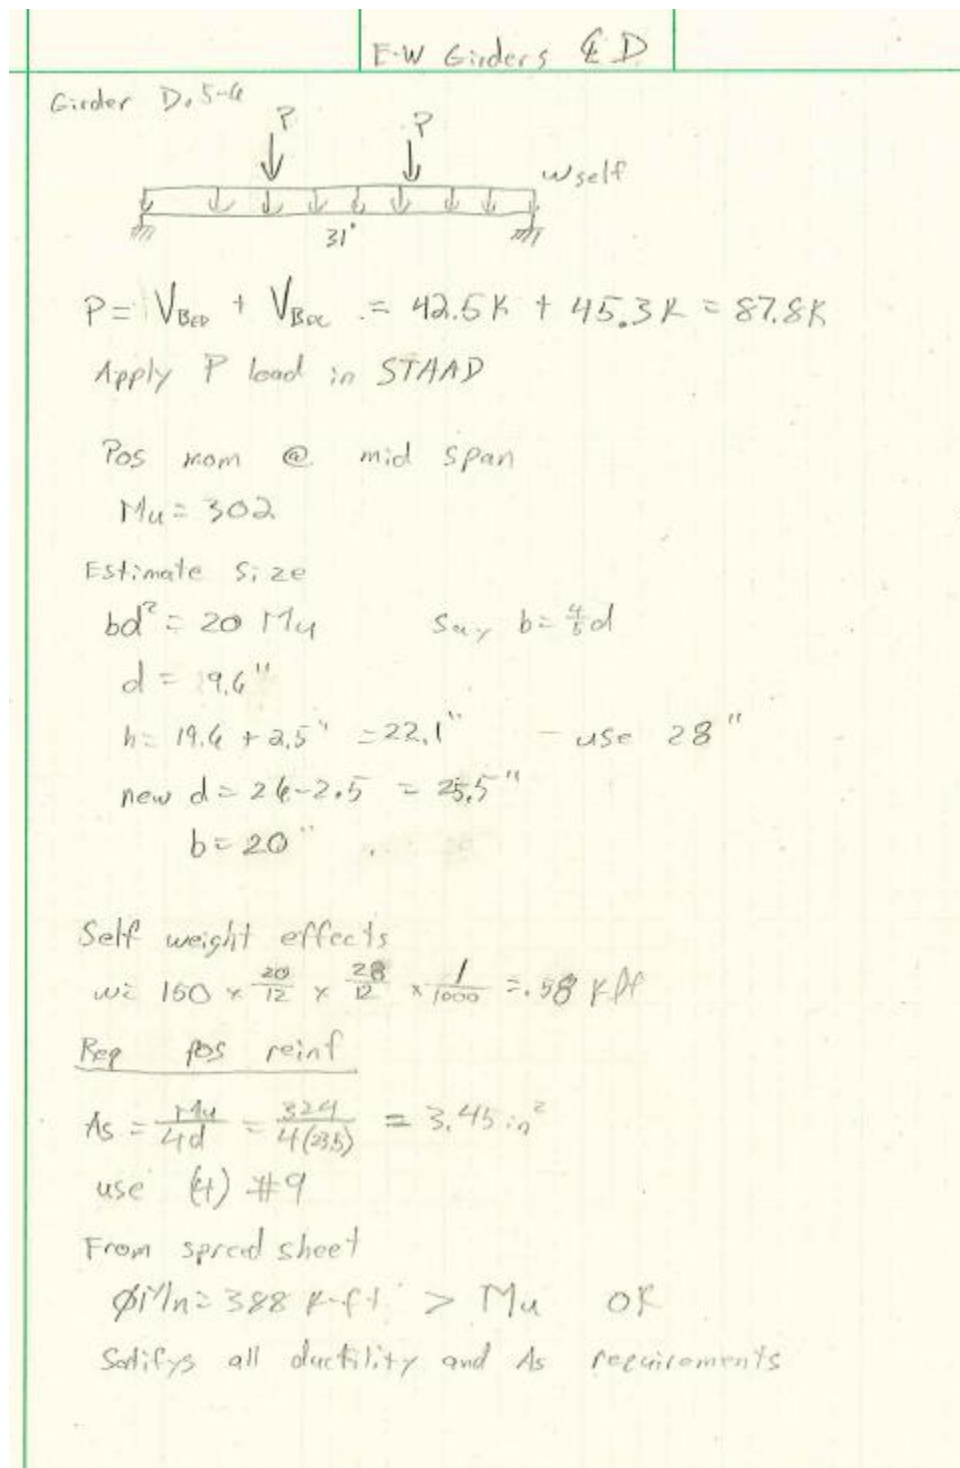 E-W Girders ℄ D
Girder D.5-6
P P
w self
31'
P = V_BED + V_BDC = 42.5K + 45.3K = 87.8K
Apply P load in STAAD
Pos mom @ mid span
Mu = 302
Estimate Size
bd² = 20 Mu Say b = 4/5 d
d = 19.6"
h = 19.6 + 2.5" = 22.1" - use 28"
new d = 26-2.5 = 25.5"
b = 20"
Self weight effects
w = 150 x 20/12 x 28/12 x 1/1000 = .58 Klf
Req pos reinf
As = Mu/4d = 324/4(23.5) = 3.45 in²
use (4) #9
From spred sheet
ØMn = 388 K-ft > Mu OK
Satifys all ductility and As requirements